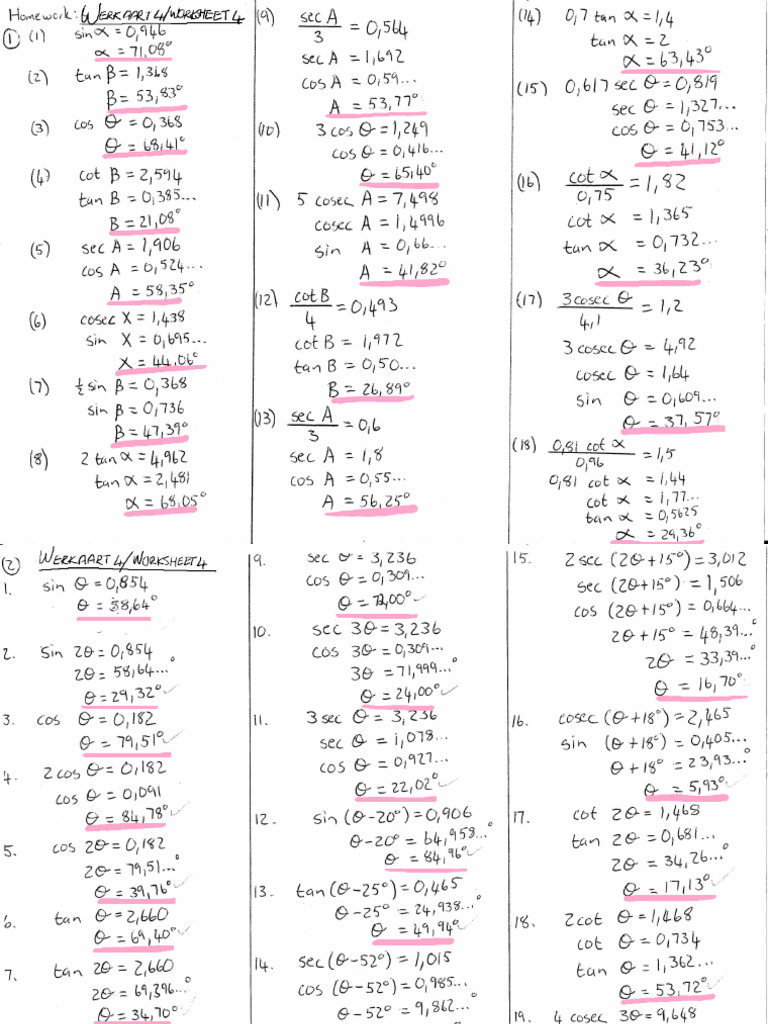 Homework: WERKAART 4/WORKSHEET 4
① (1) sin α = 0,946
α = 71,08°
(2) tan β = 1,368
β = 53,83°
(3) cos θ = 0,368
θ = 68,41°
(4) cot B = 2,594
tan B = 0,385...
B = 21,08°
(5) sec A = 1,906
cos A = 0,524...
A = 58,35°
(6) cosec X = 1,438
sin X = 0,695...
X = 44,06°
(7) ½ sin β = 0,368
sin β = 0,736
β = 47,39°
(8) 2 tan α = 4,962
tan α = 2,481
α = 68,05°
(9) sec A / 3 = 0,564
sec A = 1,692
cos A = 0,59...
A = 53,77°
(10) 3 cos θ = 1,249
cos θ = 0,416...
θ = 65,40°
(11) 5 cosec A = 7,498
cosec A = 1,4996
sin A = 0,66...
A = 41,82°
(12) cot B / 4 = 0,493
cot B = 1,972
tan B = 0,50...
B = 26,89°
(13) sec A / 3 = 0,6
sec A = 1,8
cos A = 0,55...
A = 56,25°
(14) 0,7 tan α = 1,4
tan α = 2
α = 63,43°
(15) 0,617 sec θ = 0,819
sec θ = 1,327...
cos θ = 0,753...
θ = 41,12°
(16) cot α / 0,75 = 1,82
cot α = 1,365
tan α = 0,732...
α = 36,23°
(17) 3 cosec θ / 4,1 = 1,2
3 cosec θ = 4,92
cosec θ = 1,64
sin θ = 0,609...
θ = 37,57°
(18) 0,81 cot α / 0,96 = 1,5
0,81 cot α = 1,44
cot α = 1,77...
tan α = 0,5625
α = 29,36°
② WERKAART 4/WORKSHEET 4
1. sin θ = 0,854
θ = 58,64°
2. sin 2θ = 0,854
2θ = 58,64...°
θ = 29,32° ✓
3. cos θ = 0,182
θ = 79,51° ✓
4. 2 cos θ = 0,182
cos θ = 0,091
θ = 84,78° ✓
5. cos 2θ = 0,182
2θ = 79,51...°
θ = 39,76° ✓
6. tan θ = 2,660
θ = 69,40° ✓
7. tan 2θ = 2,660
2θ = 69,396...°
θ = 34,70° ✓
9. sec θ = 3,236
cos θ = 0,309...
θ = 72,00° ✓
10. sec 3θ = 3,236
cos 3θ = 0,309...
3θ = 71,999...°
θ = 24,00° ✓
11. 3 sec θ = 3,236
sec θ = 1,078...
cos θ = 0,927...
θ = 22,02° ✓
12. sin (θ-20°) = 0,906
θ-20° = 64,958...°
θ = 84,96° ✓
13. tan (θ-25°) = 0,465
θ-25° = 24,938...°
θ = 49,94° ✓
14. sec (θ-52°) = 1,015
cos (θ-52°) = 0,985...
θ-52° = 9,862...°
15. 2 sec (2θ+15°) = 3,012
sec (2θ+15°) = 1,506
cos (2θ+15°) = 0,664...
2θ+15° = 48,39...°
2θ = 33,39...°
θ = 16,70° ✓
16. cosec (θ+18°) = 2,465
sin (θ+18°) = 0,405...
θ+18° = 23,93...°
θ = 5,93° ✓
17. cot 2θ = 1,468
tan 2θ = 0,681...
2θ = 34,26...°
θ = 17,13° ✓
18. 2 cot θ = 1,468
cot θ = 0,734
tan θ = 1,362...
θ = 53,72° ✓
19. 4 cosec 3θ = 9,648